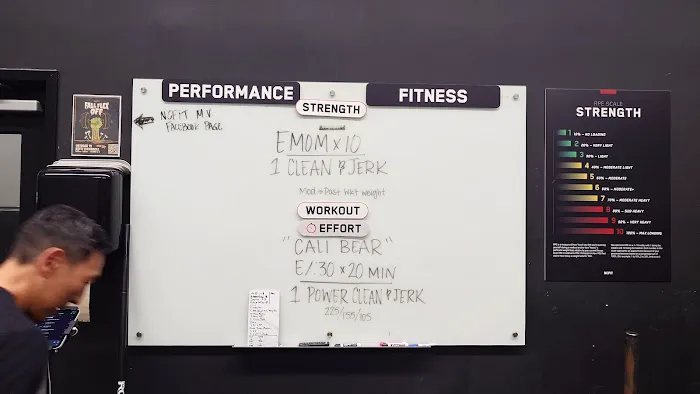 PERFORMANCE
FITNESS
STRENGTH
NCFIT M.V.
FACEBOOK PAGE
EMOM x 10
1 CLEAN & JERK
Mod = Past Wkt Weight
WORKOUT
EFFORT
"CALI BEAR"
E/:30 x 20 MIN
1 POWER CLEAN & JERK
225/155/105
FALL FLEX
OFF
RPE SCALE
STRENGTH
1 10% - NO LOADING
2 20% - VERY LIGHT
3 30% - LIGHT
4 40% - MODERATE LIGHT
5 50% - MODERATE
6 60% - MODERATE+
7 70% - MODERATE HEAVY
8 80% - SUB HEAVY
9 90% - VERY HEAVY
10 100% - MAX LOADING
NCFIT